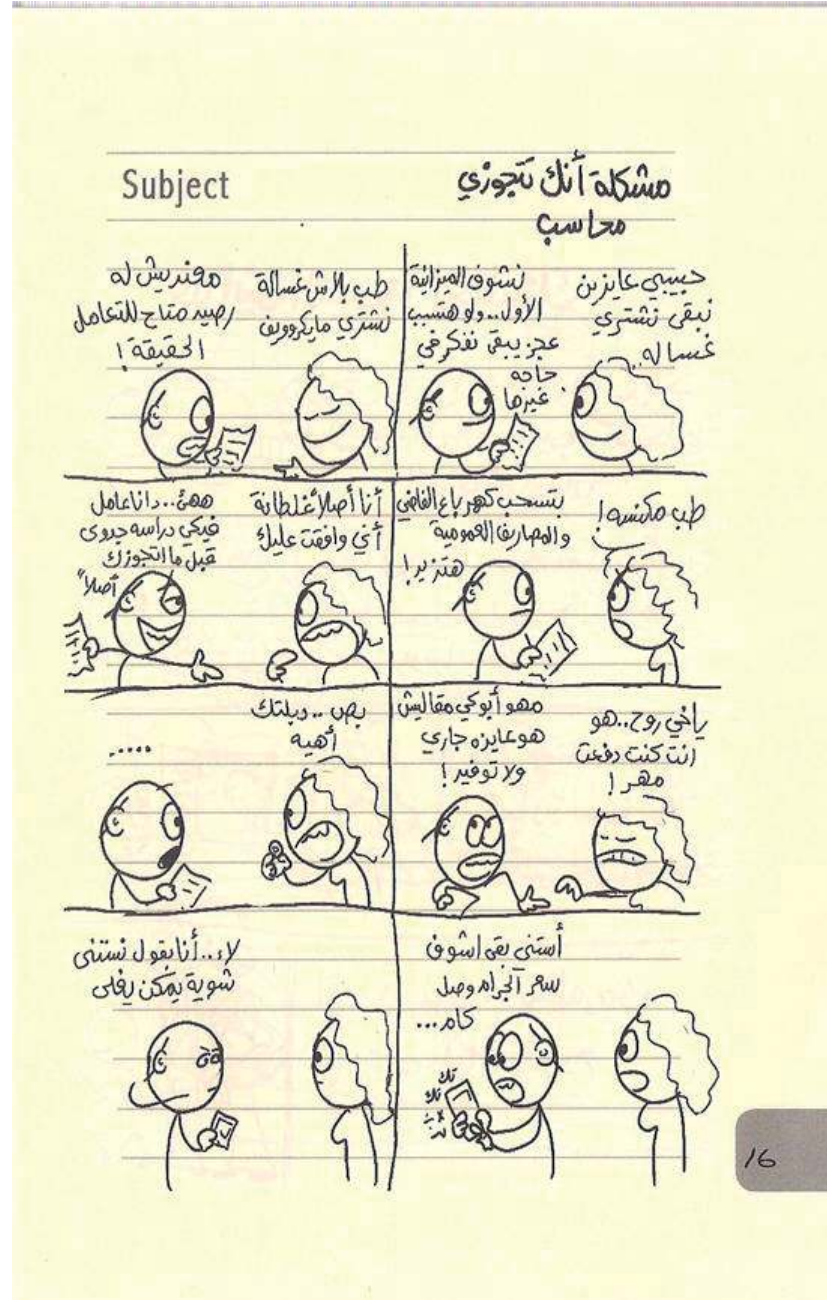 Subject
مشكلة أنك تتجوزي
محاسب
حبيبي عايزين
نبقى نشتري
غساله..
نشوف الميزانية
الأول..ولو هتسبب
عجز يبقى نفكر في
حاجه
غيرها
طب بلاش غسالة
نشتري مايكروويف
معنديش له
رصيد متاح للتعامل
الحقيقة!
طب مكنسه!
بتسحب كهرباء ع الفاضي
والمصاريف العمومية
هتزيد!
أنا أصلاً غلطانة
أني وافقت عليك
ههئ..دانا عامل
فيكي دراسه جدوى
قبل ما اتجوزك
أصلاً
ياخي روح..هو
انت كنت دفعت
مهر!
مهو أبوكي مقاليش
هو عايزه جاري
ولا توفير!
بص..دبلتك
أهيه
.....
أستني بقى اشوف
سعر الجرام وصل
كام...
تك
تك
لاء..أنا بقول نستنى
شوية يمكن يغلى
16